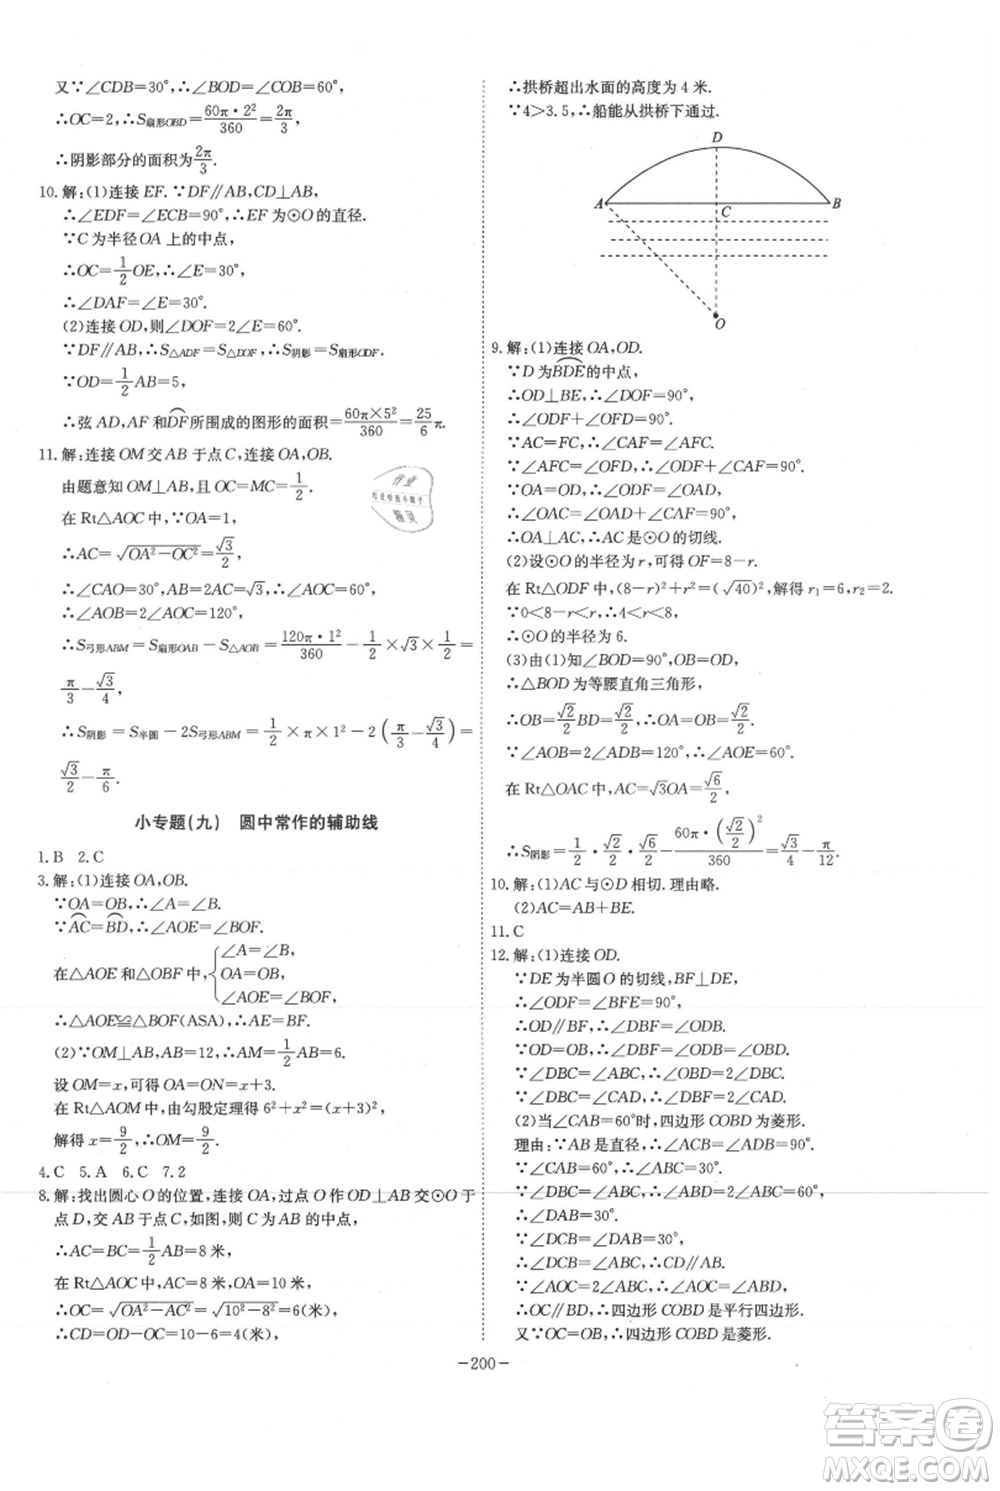 又∵∠CDB=30°,∴∠BOD=∠COB=60°.
∴OC=2,∴S扇形OBD=60π·2²/360=2π/3.
∴阴影部分的面积为2π/3.
10.解:(1)连接EF.∵DF∥AB,CD⊥AB,
∴∠EDF=∠ECB=90°,∴EF为⊙O的直径.
∵C为半径OA上的中点,
∴OC=1/2OE,∴∠E=30°.
∴∠DAF=∠E=30°.
(2)连接OD,则∠DOF=2∠E=60°.
∵DF∥AB,∴S△ADF=S△DOF,∴S阴影=S扇形ODF.
∵OD=1/2AB=5,
∴弦AD,AF和DF所围成的图形的面积=60π×5²/360=25/6π.
11.解:连接OM交AB于点C,连接OA,OB.
由题意知OM⊥AB,且OC=MC=1/2.
在Rt△AOC中,∵OA=1,
∴AC=√(OA²-OC²)=√3/2,
∴∠CAO=30°,AB=2AC=√3,∴∠AOC=60°.
∴∠AOB=2∠AOC=120°,
∴S弓形ABM=S扇形OAB-S△AOB=120π·1²/360-1/2×√3×1/2=
π/3-√3/4,
∴S阴影=S半圆-2S弓形ABM=1/2×π×1²-2(π/3-√3/4)=
√3/2-π/6.
小专题(九) 圆中常作的辅助线
1.B 2.C
3.解:(1)连接OA,OB.
∵OA=OB,∴∠A=∠B.
∵AC=BD,∴∠AOE=∠BOF.
在△AOE和△OBF中,{∠A=∠B,
OA=OB,
∠AOE=∠BOF,
∴△AOE≌△BOF(ASA),∴AE=BF.
(2)∵OM⊥AB,AB=12,∴AM=1/2AB=6.
设OM=x,可得OA=ON=x+3,
在Rt△AOM中,由勾股定理得6²+x²=(x+3)²,
解得x=9/2,∴OM=9/2.
4.C 5.A 6.C 7.2
8.解:找出圆心O的位置,连接OA,过点O作OD⊥AB交⊙O于
点D,交AB于点C,如图,则C为AB的中点,
∴AC=BC=1/2AB=8米,
在Rt△AOC中,AC=8米,OA=10米,
∴OC=√(OA²-AC²)=√(10²-8²)=6(米),
∴CD=OD-OC=10-6=4(米),
∴拱桥超出水面的高度为4米.
∵4>3.5,∴船能从拱桥下通过.
D
A
C
B
O
9.解:(1)连接OA,OD.
∵D为BDE的中点,
∴OD⊥BE,∴∠DOF=90°,
∴∠ODF+∠OFD=90°.
∵AC=FC,∴∠CAF=∠AFC.
∵∠AFC=∠OFD,∴∠ODF+∠CAF=90°.
∵OA=OD,∴∠ODF=∠OAD,
∴∠OAC=∠OAD+∠CAF=90°,
∴OA⊥AC,∴AC是⊙O的切线.
(2)设⊙O的半径为r,可得OF=8-r.
在Rt△ODF中,(8-r)²+r²=(√40)²,解得r₁=6,r₂=2.
∵0<8-r<r,∴4<r<8,
∴⊙O的半径为6.
(3)由(1)知∠BOD=90°,OB=OD,
∴△BOD为等腰直角三角形,
∴OB=√2/2BD=√2/2,∴OA=OB=√2/2.
∵∠AOB=2∠ADB=120°,∴∠AOE=60°.
在Rt△OAC中,AC=√3OA=√6/2,
∴S阴影=1/2·√2/2·√6/2-60π·(√2/2)²/360=√3/4-π/12.
10.解:(1)AC与⊙D相切.理由略.
(2)AC=AB+BE.
11.C
12.解:(1)连接OD.
∵DE为半圆O的切线,BF⊥DE,
∴∠ODF=∠BFE=90°,
∴OD∥BF,∴∠DBF=∠ODB.
∵OD=OB,∴∠ODB=∠OBD.
∵∠DBC=∠CAD,∴∠OBD=2∠CAD.
∵∠DBC=∠CAD,∴∠DBF=2∠CAD.
(2)当∠CAB=60°时,四边形COBD为菱形.
理由:∵AB是直径,∴∠ACB=∠ADB=90°.
∵∠CAB=60°,∴∠ABC=30°.
∵∠DBC=∠ABC,∴∠DBC=30°,
∴∠DAB=30°.
∴∠DCB=∠ABC,∴CD∥AB.
∵∠CAO=60°,∴∠AOC=∠ABD,
∴OC∥BD,∴四边形COBD是平行四边形.
又∵OC=OB,∴四边形COBD是菱形.
-200-
作业
精灵
答案圈
MXQE.COM